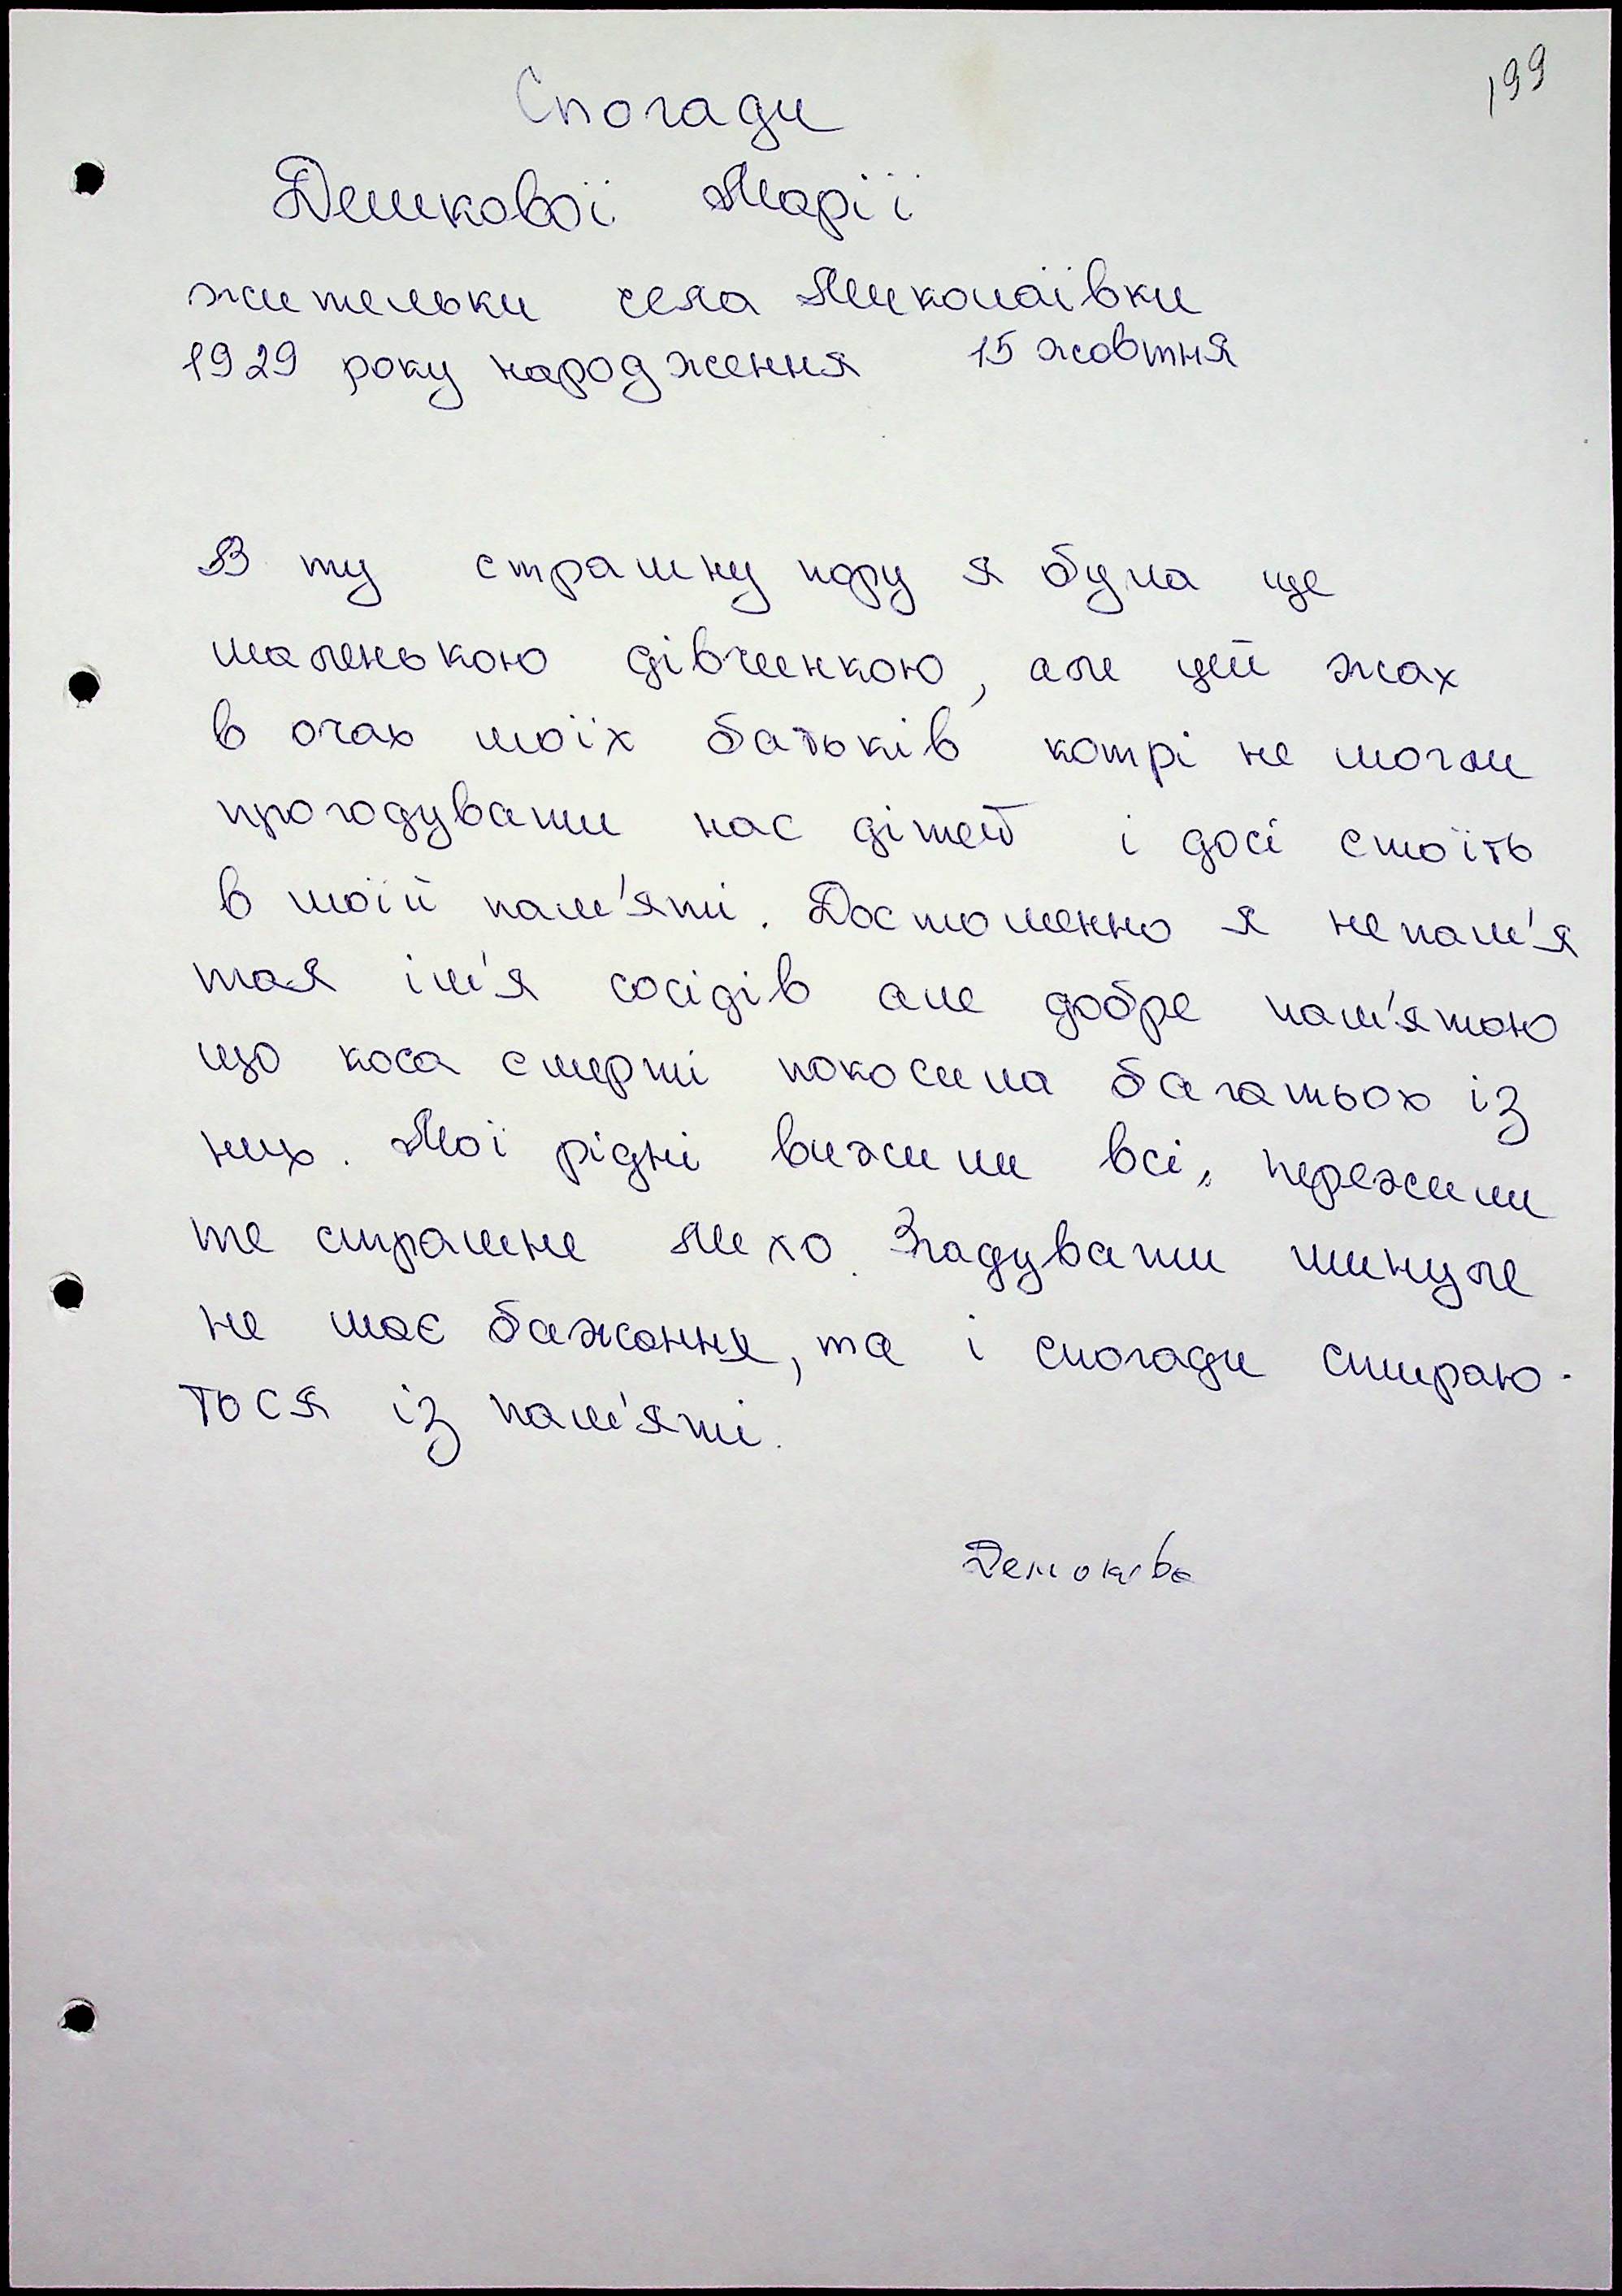 199
Спогади
Демкової Марії
жительки села Миколаївки
1929 року народження 15 жовтня
В ту страшну пору я була ще
маленькою дівчинкою, але цей жах
в очах моїх батьків котрі не могли
прогодувати нас дітей і досі стоїть
в моїй пам'яті. Достоменно я не пам'я
тая ім'я сосідів але добре пам'ятаю
що коса смерті покосила багатьох із
них. Мої рідні вижили всі, пережили
те страшне лихо. Згадувати минуле
не має бажання, та і спогади стираю-
ться із пам'яті.